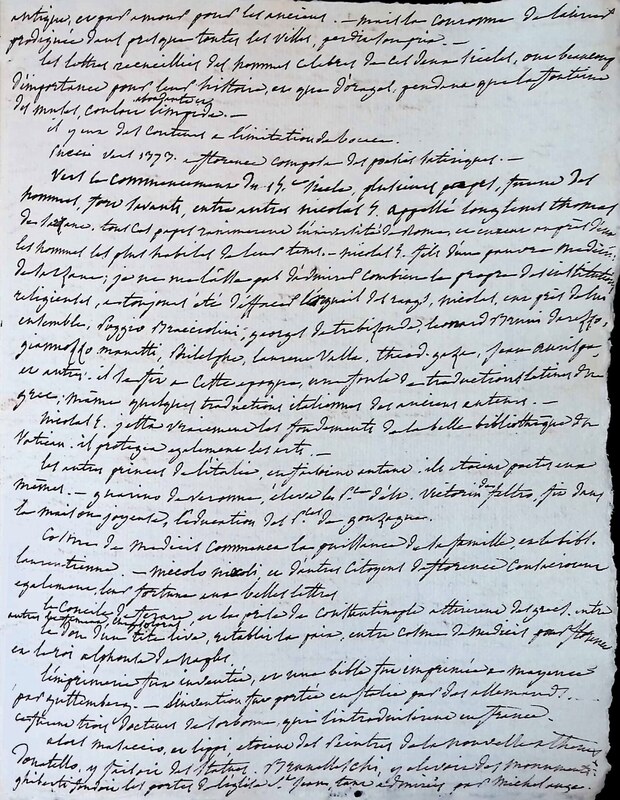 antique, et par amour pour les anciens. — mais la couronne de laurier
prodiguée dans presque toutes les villes, perdit son prix. —
les lettres recueillies des hommes celebres de ces deux siecles, ont beaucoup
d'importance pour leur histoire, et que d'orages, pendant que la fontaine
des muses, couloit abondante et limpide. —
il y eut des conteurs a l'imitation de bocace.
vers 1373. a florence composa des poesies satiriques. —
Vers le commencement du 15.e siecle, plusieurs papes, furent des
hommes, fort savants, entre autres nicolas 5. appellé longtems thomas
de sarzane. tous ces papes ranimerent l'université de Rome, et eurent auprès d'eux
les hommes les plus habiles de leur tems. — nicolas 5. fils d'un pauvre medecin
de sarzane; je ne me lasse pas d'admirer combien le propre des institutions
religieuses, a toujours été d'effacer l'orgueil des rangs, nicolas, eut près de lui
ensemble, Poggio Bracciolini, georges de trebizonde, leonard Bruni d'arezzo,
giannozzo manetti, Philelphe, laurent Valla, theod. gaza, jean Aurispa,
et autres. il se fit a cette epoque, une foule de traductions latines du
grec, même quelques traductions italiennes des anciens auteurs. —
Nicolas 5. jetta vraiement les fondements de la belle bibliothèque du
Vatican. il protegea egalement les arts. —
les autres princes de l'italie, en faisoient autant. ils etoient poetes eux
mêmes. — guarino de veronne, éleva le P.ce d'este. Victorin de feltro, fit dans
la maison joyeuse, l'education des P.ces de gonzague.
Cosme de medicis commença la puissance de sa famille, et la bibl.
laurentienne. — niccolo nicoli, et d'autres citoyens de florence consacrerent
egalement leur fortune aux belles lettres
le Concile de florence, et la perte de constantinople attirerent des grecs. entre
autres
le don d'un tite live, retablit la paix, entre cosme de medicis pour florence
et le roi alphonse de naples.
l'imprimerie fut inventée, et une bible fut imprimée a mayence
par guttemberg. — l'invention fut portée en italie par des allemands...
ce furent trois docteurs de sorbonne, qui l'introduisirent en france.
alors masaccio, et lippi, etoient des Peintres de la nouvelle athenes
Donatello, y faisoit des statues. Brunelleschi, y elevoit des monuments.
ghiberti fondoit les portes de l'église S.t jean, tant admirées par Michelange.